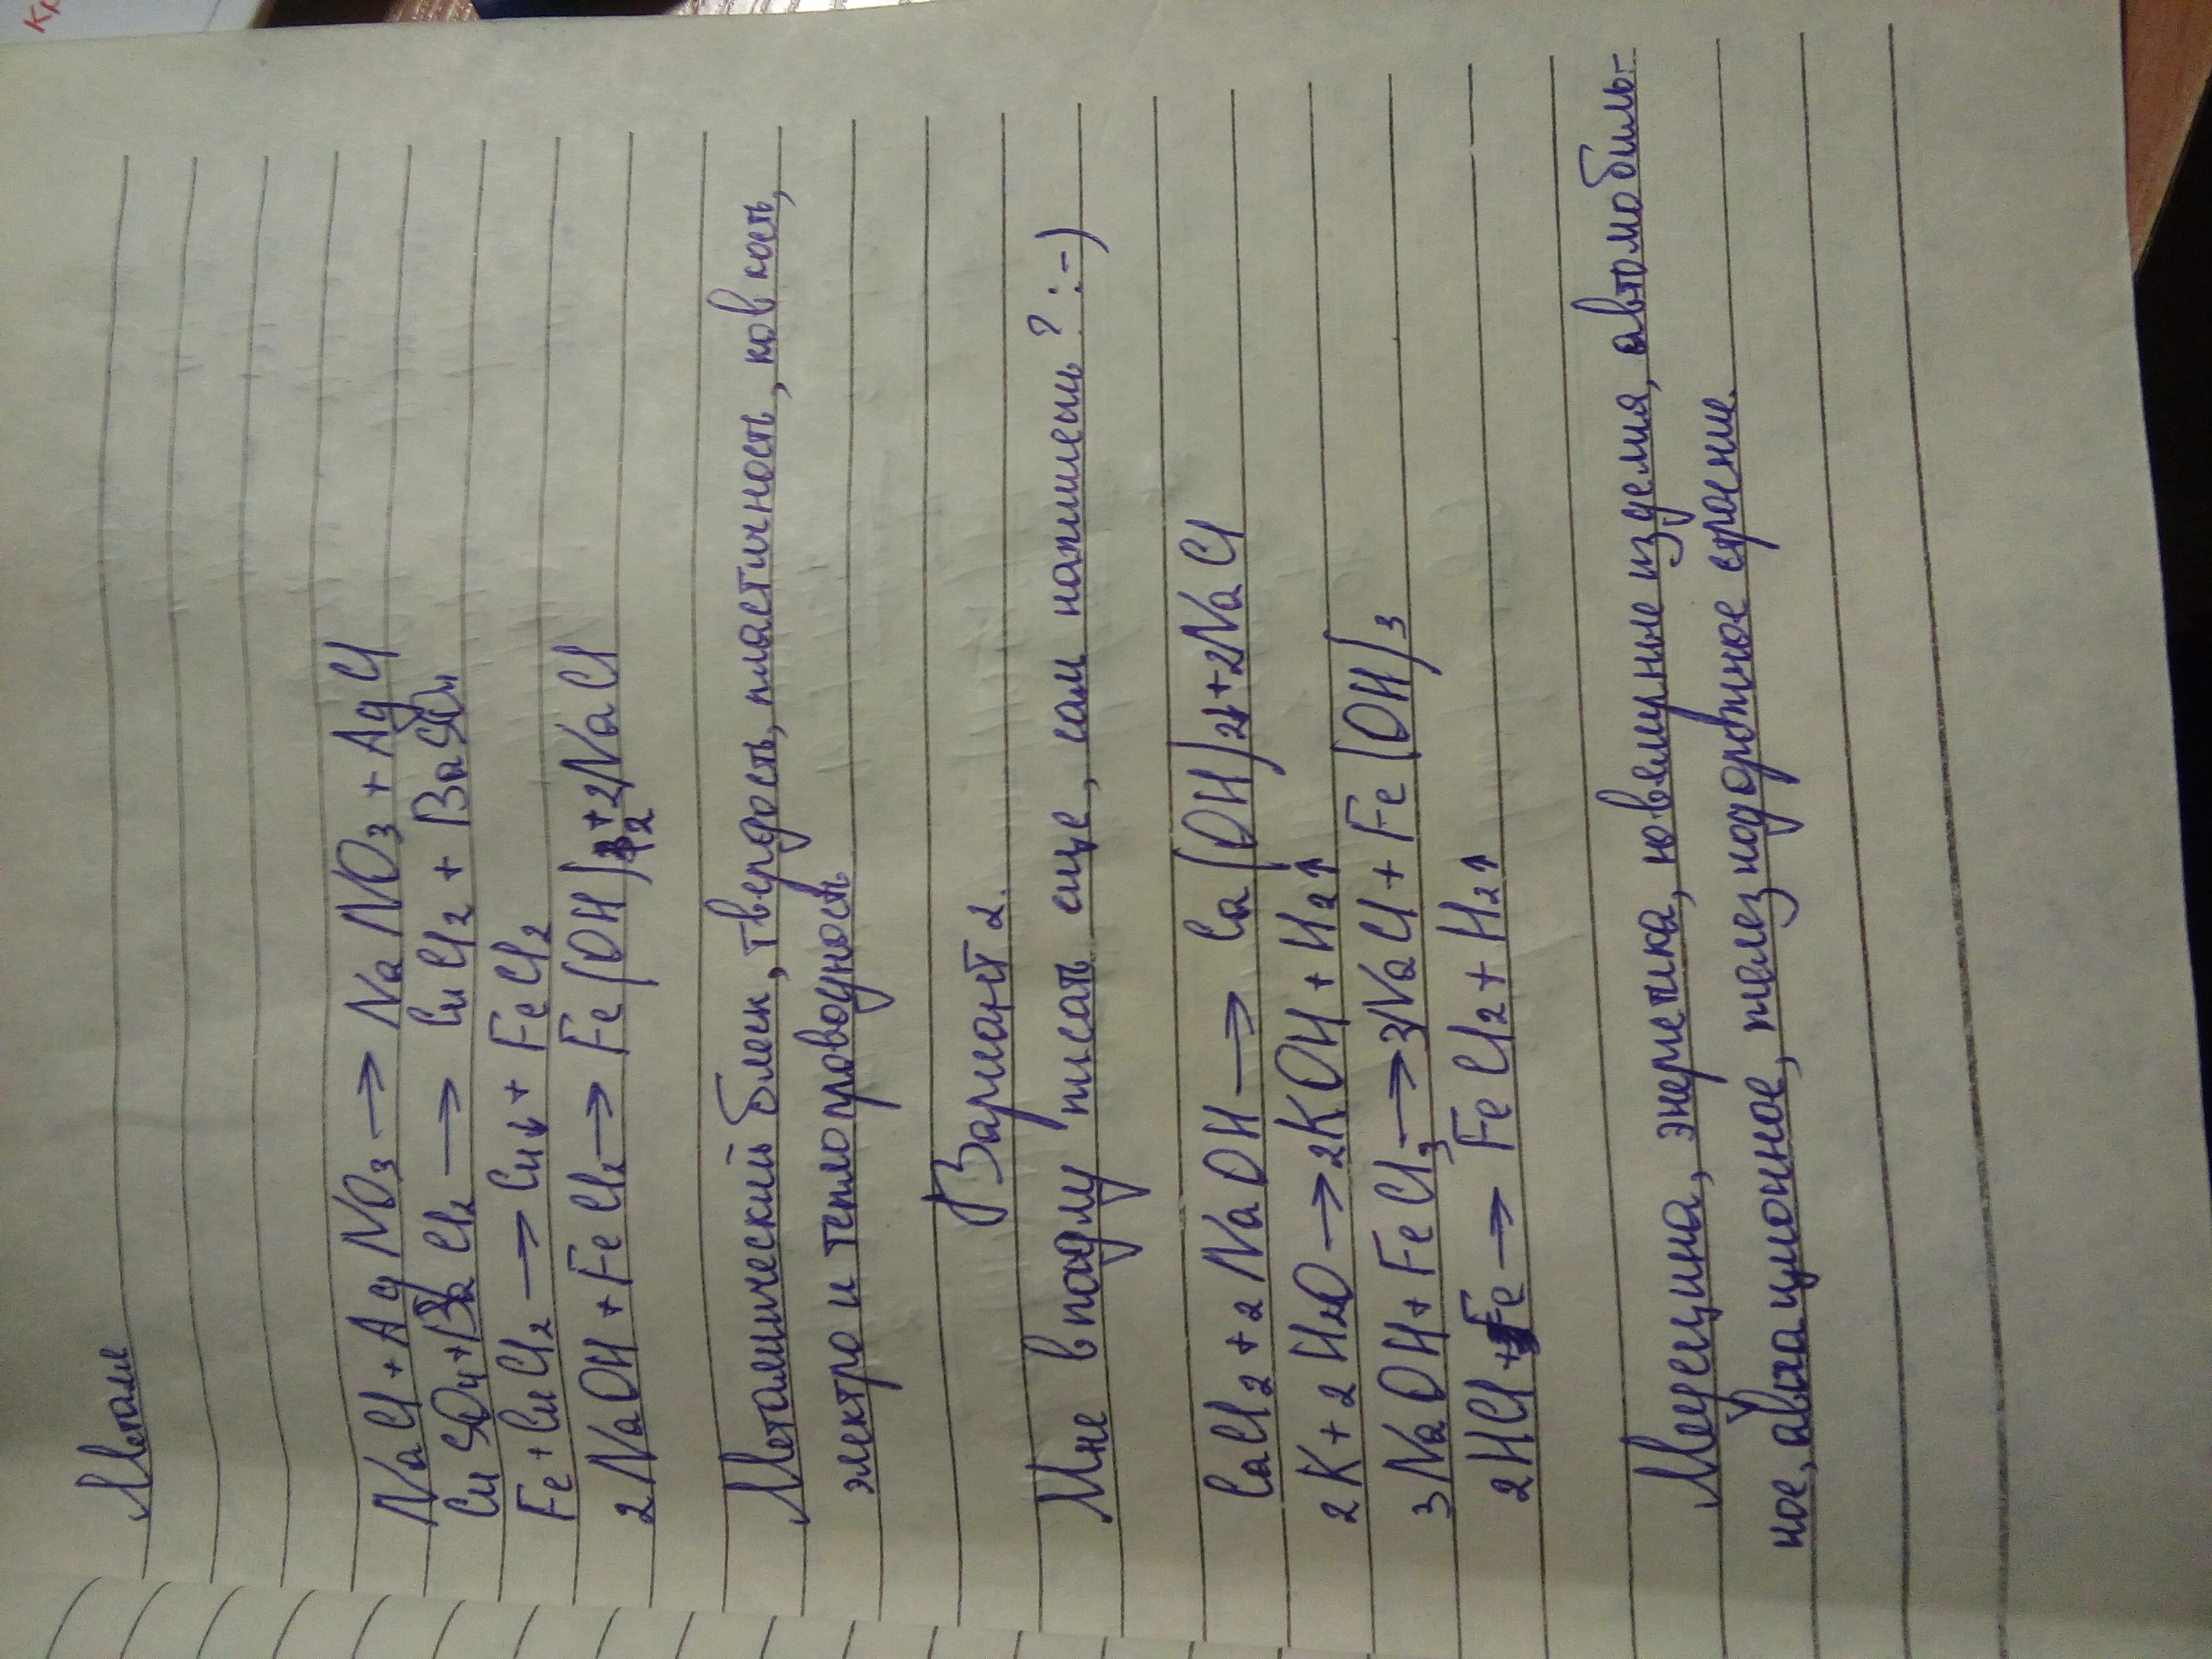 Металл
NaCl + AgNO3 → NaNO3 + AgCl
CuSO4 + BaCl2 → CuCl2 + BaSO4
Fe + CuCl2 → Cu↓ + FeCl2
2NaOH + FeCl2 → Fe(OH)2 + 2NaCl
Металлический блеск, твердость, пластичность, ковкость,
электро и теплопроводность
Вариант 2.
Мне в падлу писать еще, сам напишешь? :-)
CaCl2 + 2NaOH → Ca(OH)2↓ + 2NaCl
2K + 2H2O → 2KOH + H2↑
3NaOH + FeCl3 → 3NaCl + Fe(OH)3
2HCl + Fe → FeCl2 + H2↑
Медецина, энергетика, ювелирные изделия, автомобиль-
ное, авиационное, железнодорожное строение.